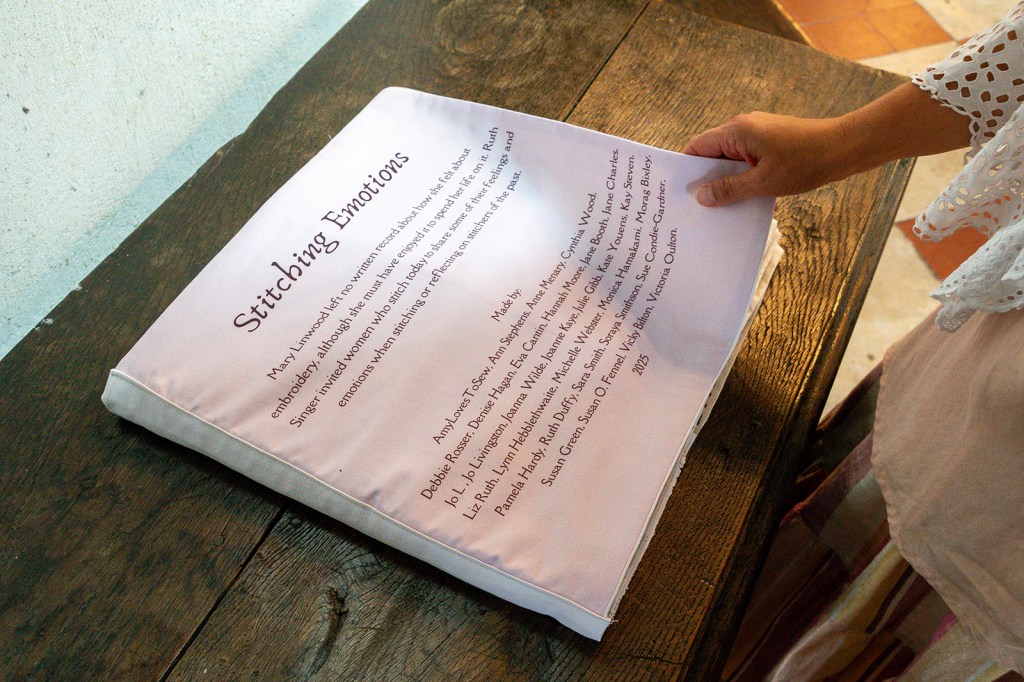 Stitching Emotions
Mary Linwood left no written record about how she felt about
embroidery, although she must have enjoyed it to spend her life on it. Ruth
Singer invited women who stitch today to share some of their feelings and
emotions when stitching or reflecting on stitchers of the past.
Made by:
AmyLovesToSew, Ann Stephens, Anne Menary, Cynthia Wood,
Debbie Rosser, Denise Hagan, Eva Cantin, Hannah Moore, Jane Booth, Jane Charles,
Jo L , Jo Livingston, Joanna Wilde, Joanne Kaye, Julie Gibb, Kate Youens, Kay Steven,
Liz Ruth, Lynn Hebblethwaite, Michelle Webster, Monica Hamakami, Morag Bixley,
Pamela Hardy, Ruth Duffy, Sara Smith, Soraya Smithson, Sue Condie-Gardner,
Susan Green, Susan O. Fennel, Vicky Bilton, Victoria Oulton.
2025